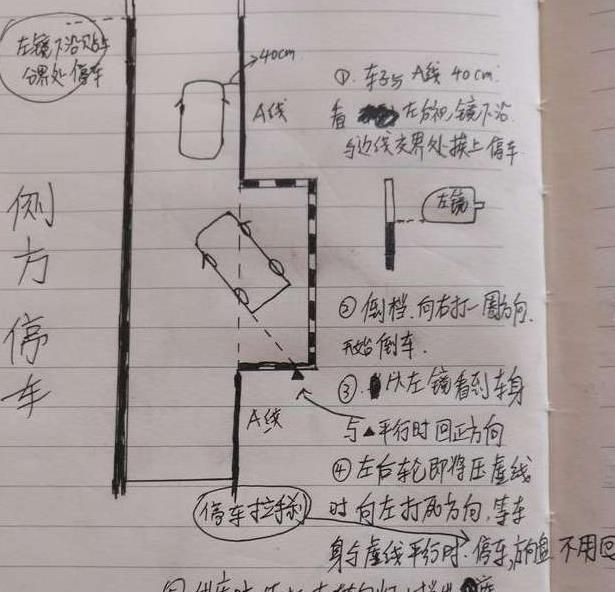 左镜下沿
分界处 停车
40cm
A线
侧方停车
①. 车子与 A线 40cm.
看 左后视镜下沿
与边线交界处 停车
左镜
② 倒档. 向右打一圈方向.
开始倒车.
③. 从左镜看到车身
与▲平行时 回正方向
A线
④ 左后轮即将压虚线
时 向左打死方向, 等车
身与虚线平行时. 停车, 方向盘 不用回
停车拉手刹